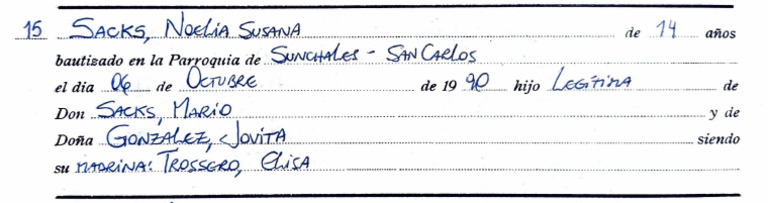 15 SACKS, NOELIA SUSANA de 14 años
bautizado en la Parroquia de SUNCHALES - SAN CARLOS
el dia 06 de OCTUBRE de 19 90 hijo LEGÍTIMA de
Don SACKS, MARIO y de
Doña GONZALEZ, JOVITA siendo
su MADRINA: TROSSERO, ELISA